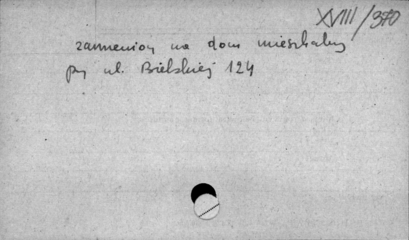 XVIII/370
zamieniony na dom mieszkalny
przy ul. Bielskiej 124